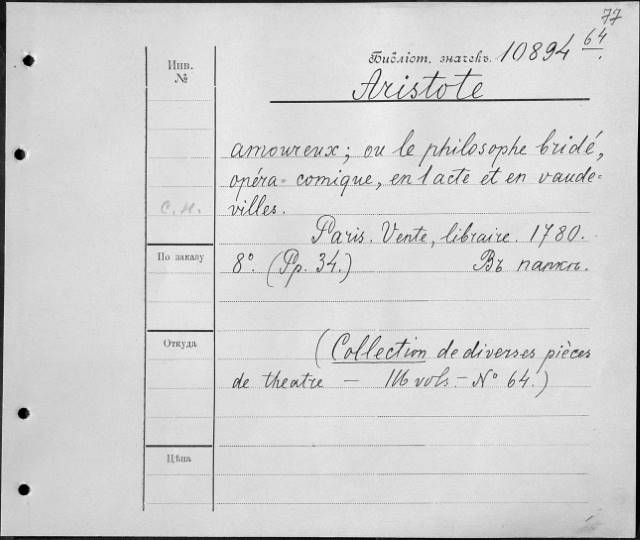 77
Инв.
№
Библіот. значекъ. 10894 64.
Aristote
amoureux; ou le philosophe bridé,
opéra-comique, en 1 acte et en vaude-
villes.
С.И.
Paris. Vente, libraire. 1780.
По заказу
8º. (Pp. 34.) Въ папкѣ.
Откуда
(Collection de diverses pièces
de theatre — 116 vols. — Nº 64.)
Цѣна